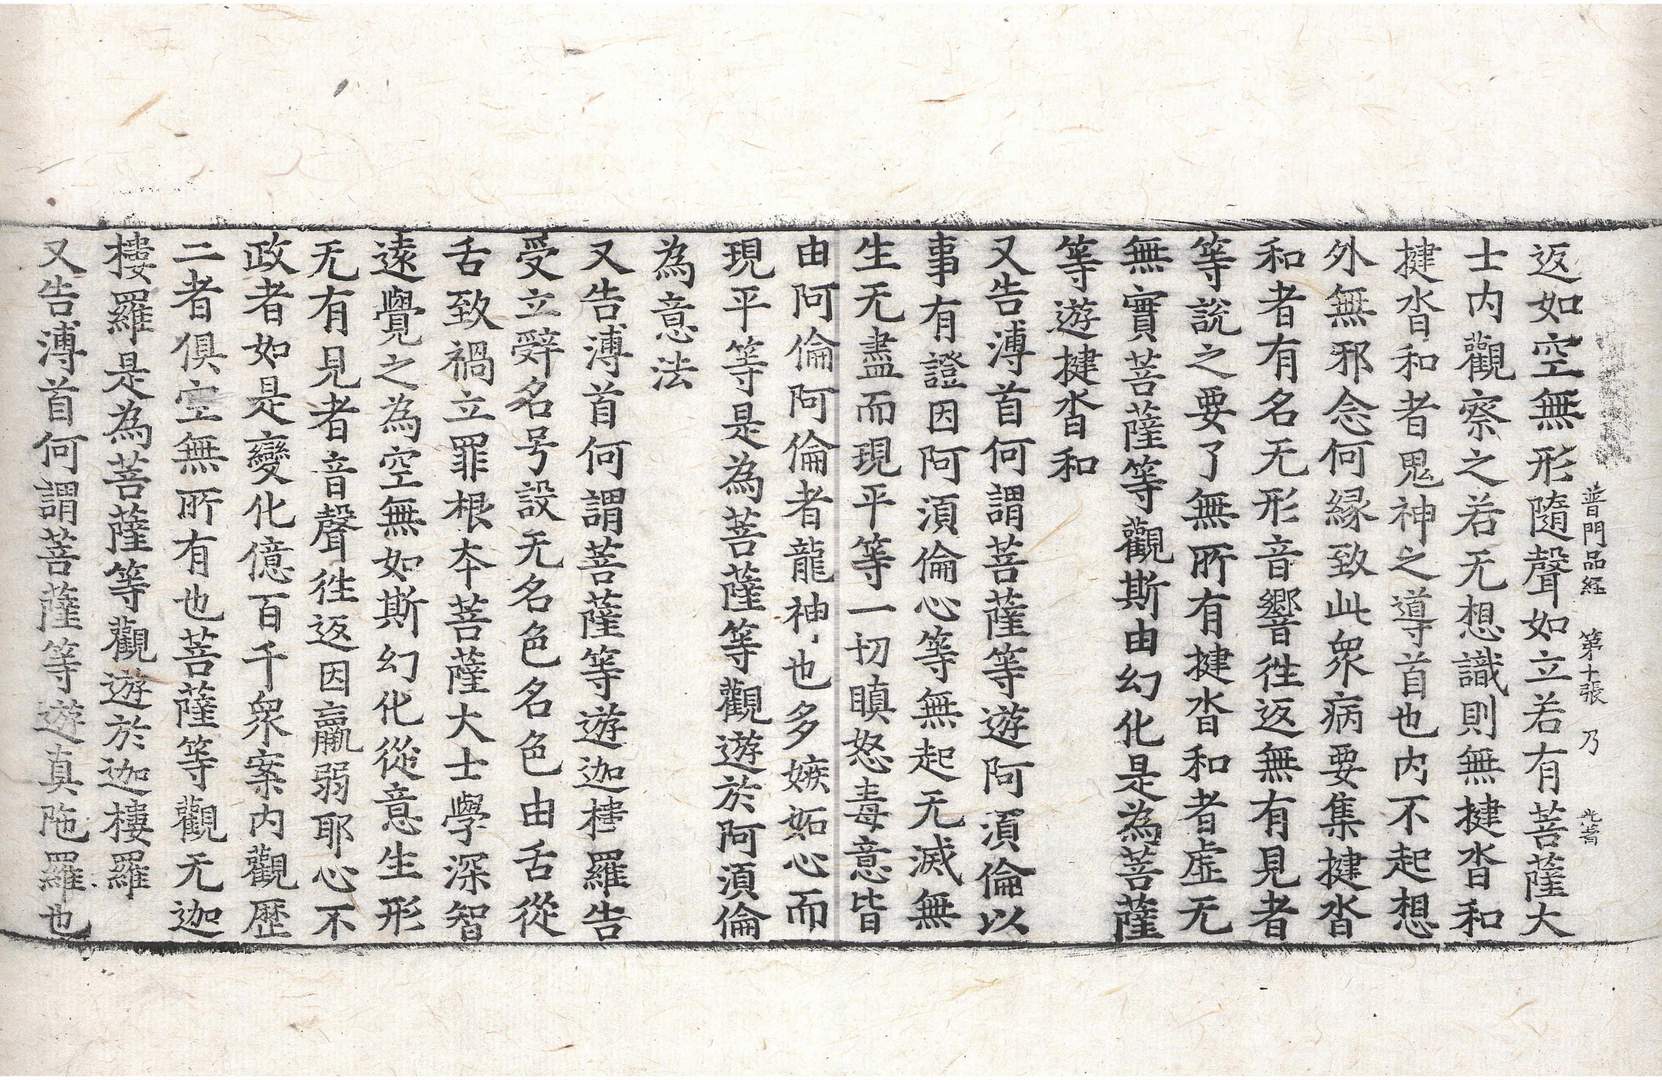 普門品経 第十張 乃
返如空無形隨聲如立若有菩薩大
士内觀察之若无想識則無揵沓和
揵沓和者鬼神之導首也内不起想
外無邪念何緣致此衆病要集揵沓
和者有名无形音響徃返無有見者
等說之要了無所有揵沓和者虛无
無實菩薩等觀斯由幻化是為菩薩
等遊揵沓和
又告溥首何謂菩薩等遊阿湏倫以
事有證因阿湏倫心等無起无滅無
生无盡而現平等一切瞋怒毒意皆
由阿倫阿倫者龍神也多嫉妬心而
現平等是為菩薩等觀遊於阿湏倫
為意法
又告溥首何謂菩薩等遊迦樓羅告
受立辤名号設无名色名色由舌從
舌致禍立罪根夲菩薩大士學深智
遠覺之為空無如斯幻化從意生形
无有見者音聲徃返因羸弱耶心不
政者如是變化億百千衆案内觀歷
二者俱空無所有也菩薩等觀无迦
樓羅是為菩薩等觀遊於迦樓羅
又告溥首何謂菩薩等遊真陁羅也